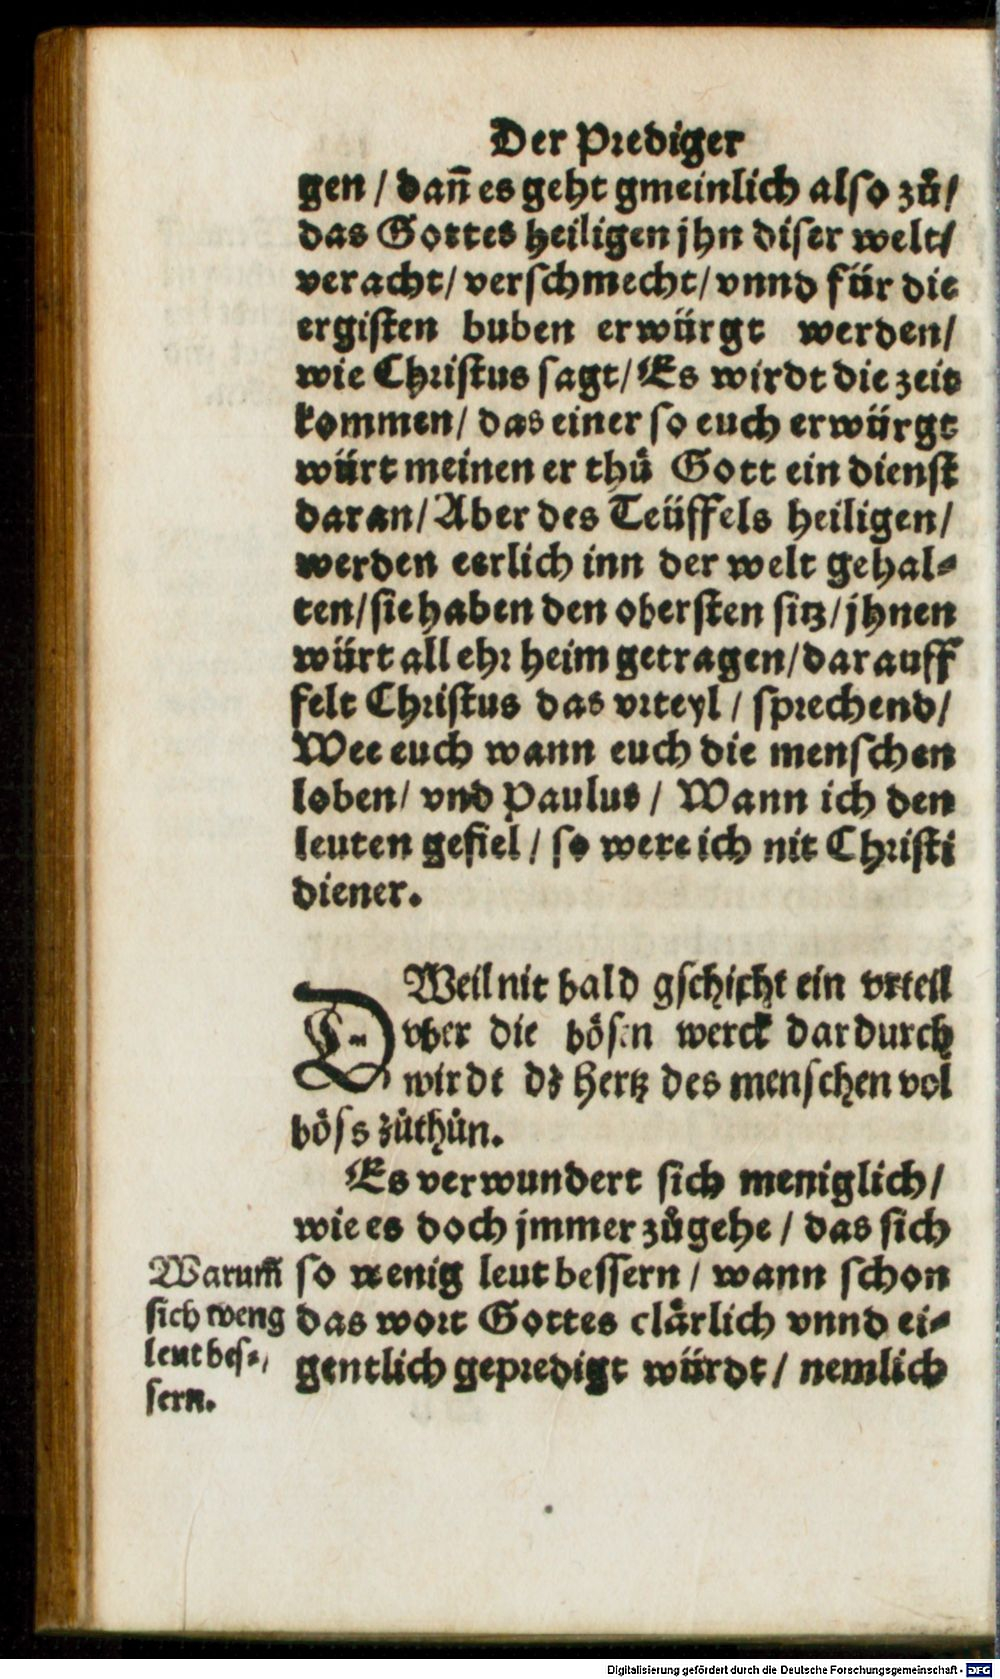 Der Prediger
gen / dañ es geht gmeinlich also zů /
das Gottes heiligen jhn diser welt /
veracht / verschmecht / vnnd für die
ergisten buben erwürgt werden /
wie Christus sagt / Es wirdt die zeit
kommen / das einer so euch erwürgt
würt meinen er thů Gott ein dienst
daran / Aber des Teüffels heiligen /
werden eerlich inn der welt gehal⸗
ten / sie haben den obersten sitz / jhnen
würt all ehr heim getragen / darauff
felt Christus das vrteyl / sprechend /
Wee euch wann euch die menschen
loben / vnd Paulus / Wann ich den
leuten gefiel / so were ich nit Christi
diener.
DWeil nit bald gschicht ein vrteil
vber die bösen werck dardurch
wirdt dz Hertz des menschen vol
böss zůthůn.
Es verwundert sich meniglich /
wie es doch jmmer zůgehe / das sich
so wenig leut bessern / wann schon
das wort Gottes clårlich vnnd ei⸗
gentlich geprediget würdt / nemlich
Warum̃
sich weng
leut bes⸗
sern.
Digitalisierung gefördert durch die Deutsche Forschungsgemeinschaft - DFG